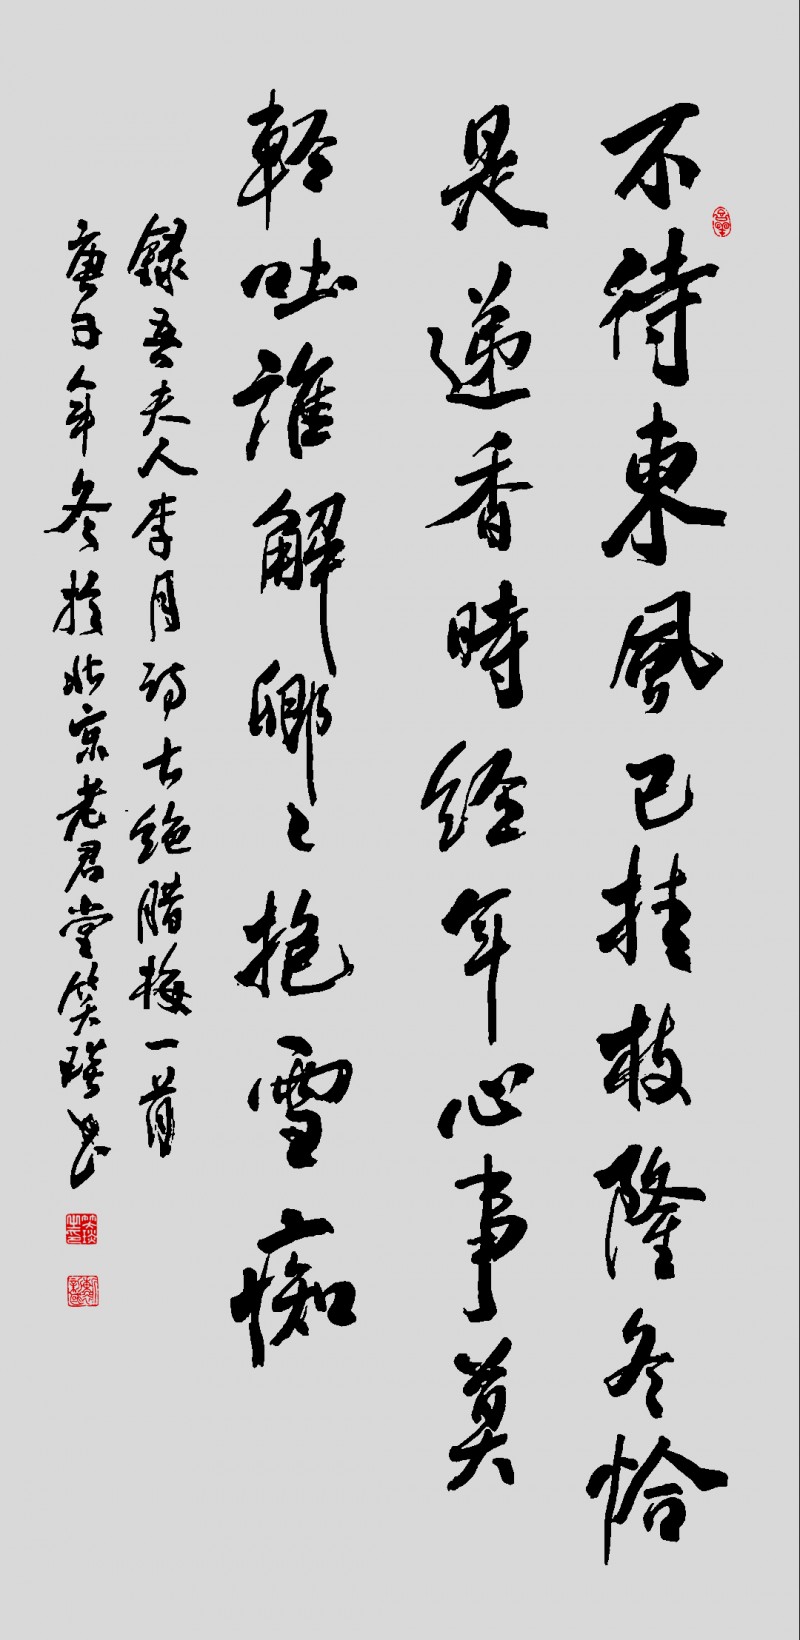 不待東風已挂枝隆冬恰
是遞香時經年心事莫
輕吐誰解卿〻抱雪痴
錄吾夫人李月詩古絶腊梅一首
庚子年冬於北京老君堂笑琰书